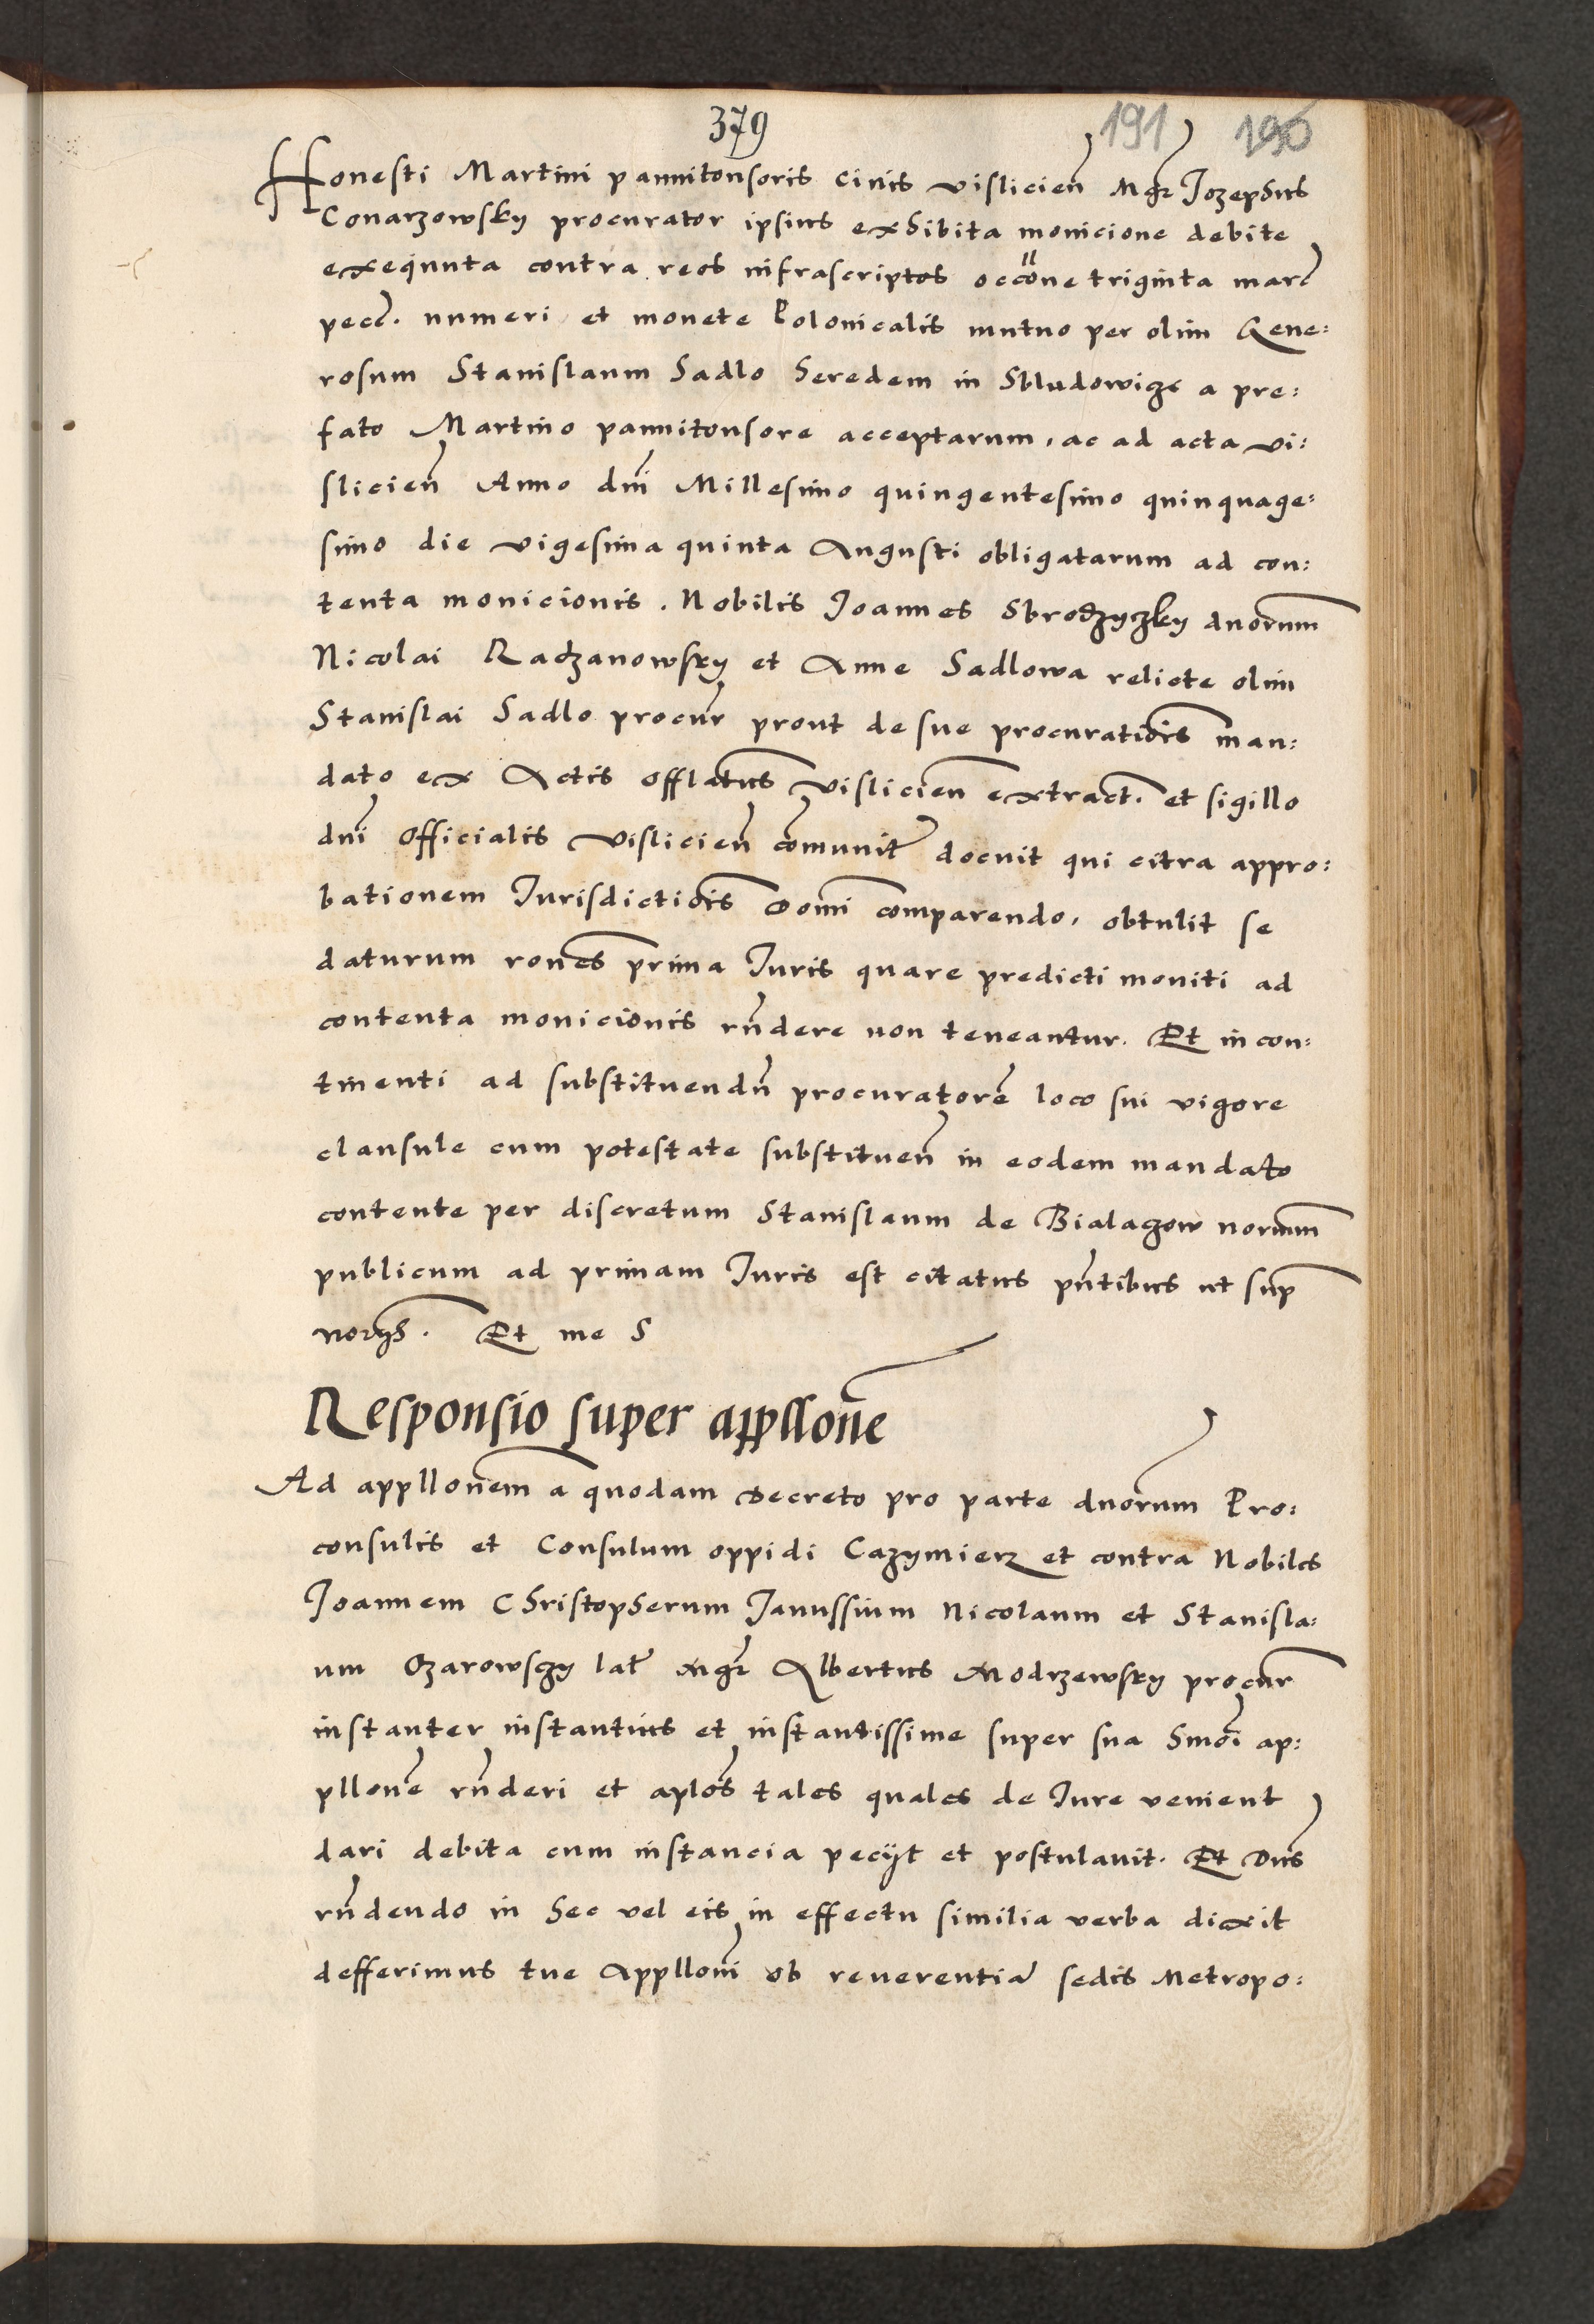 379
191 190
Honesti Martini pannitonsoris civis vislicien̄ Mgr̄ Jozephus
Conarzowsky procurator ipsius exhibita monicione debite
exequuta contra reos infrascriptos occōne triginta marc̄
pecc̄. numeri et monete Polonicalis mutuo per olim Gene:
rosum Stanislaum Sadlo heredem in Skludowicze a pre:
fato Martino pannitonsore acceptarum, ac ad acta vi:
slicien̄ Anno dnī Millesimo quingentesimo quinquage:
simo die vigesima quinta Augusti obligatarum ad con:
tenta monicionis. Nobilis Joannes Sbrodzyczky dnorum
Nicolai Radzanowsky et Anne Sadlowa relicte olim
Stanislai Sadlo procur̄ prout de sue procuratiōis man:
dato ex Actis offlatus vislicien̄ extract. et sigillo
dnī officialis vislicien̄ cōmunit̄ docuit qui citra appro:
bationem Jurisdictiōis Domī comparendo, obtulit se
daturum rones prima Juris quare predicti moniti ad
contenta monicionis rn̄dere non teneantur. Et in con:
tinenti ad substituendn̄ procuratorē loco sui vigore
clausule cum potestate substituen̄ in eodem mandato
contente per discretum Stanislaum de Bialaczow norium
publicum ad primam Juris est citatus pn̄tibus ut sup̄
norijs. Et me S
Responsio super appllonē
Ad appllonem a quodam decreto pro parte dnorum Pro:
consulis et Consulum oppidi Cazymierz et contra Nobiles
Joannem Christopherum Janussium Nicolaum et Stanisla:
um Ozarowsczy lat̄ Mgr̄ Albertus Modrzewsky procur̄
instanter instantius et instantissime super sua hmōi ap:
pllonē rn̄deri et aplōs tales quales de Jure venient
dari debita cum instancia pecijt et postulavit. Et Dns̄
rn̄dendo in hec vel eis in effectu similia verba dixit
defferimus tue Appllonī ob reverentiā sedis Metropo: